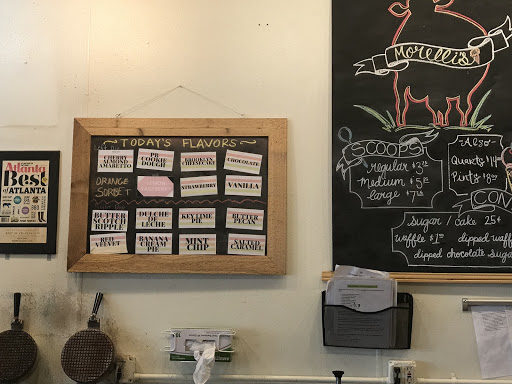 Atlanta
Best
of ATLANTA
TODAY'S FLAVORS
CHERRY
ALMOND
AMARETTO
PB
COOKIE
DOUGH
BROOKLYN
CHEESECAKE
CHOCOLATE
ORANGE
SORBET
STRAWBERRY
VANILLA
BUTTER
SCOTCH
RIPPLE
DULCHE
de
LECHE
KEY LIME
PIE
BUTTER
PECAN
RED
VELVET
BANANA
CREAM
PIE
MINT
CHIP
SALTED
CARAMEL
Morelli's
SCOOPS
regular
medium
large
Also
Quarts
Pints
CON
Sugar / cake 25¢
waffle
dipped waff
dipped chocolate sugar